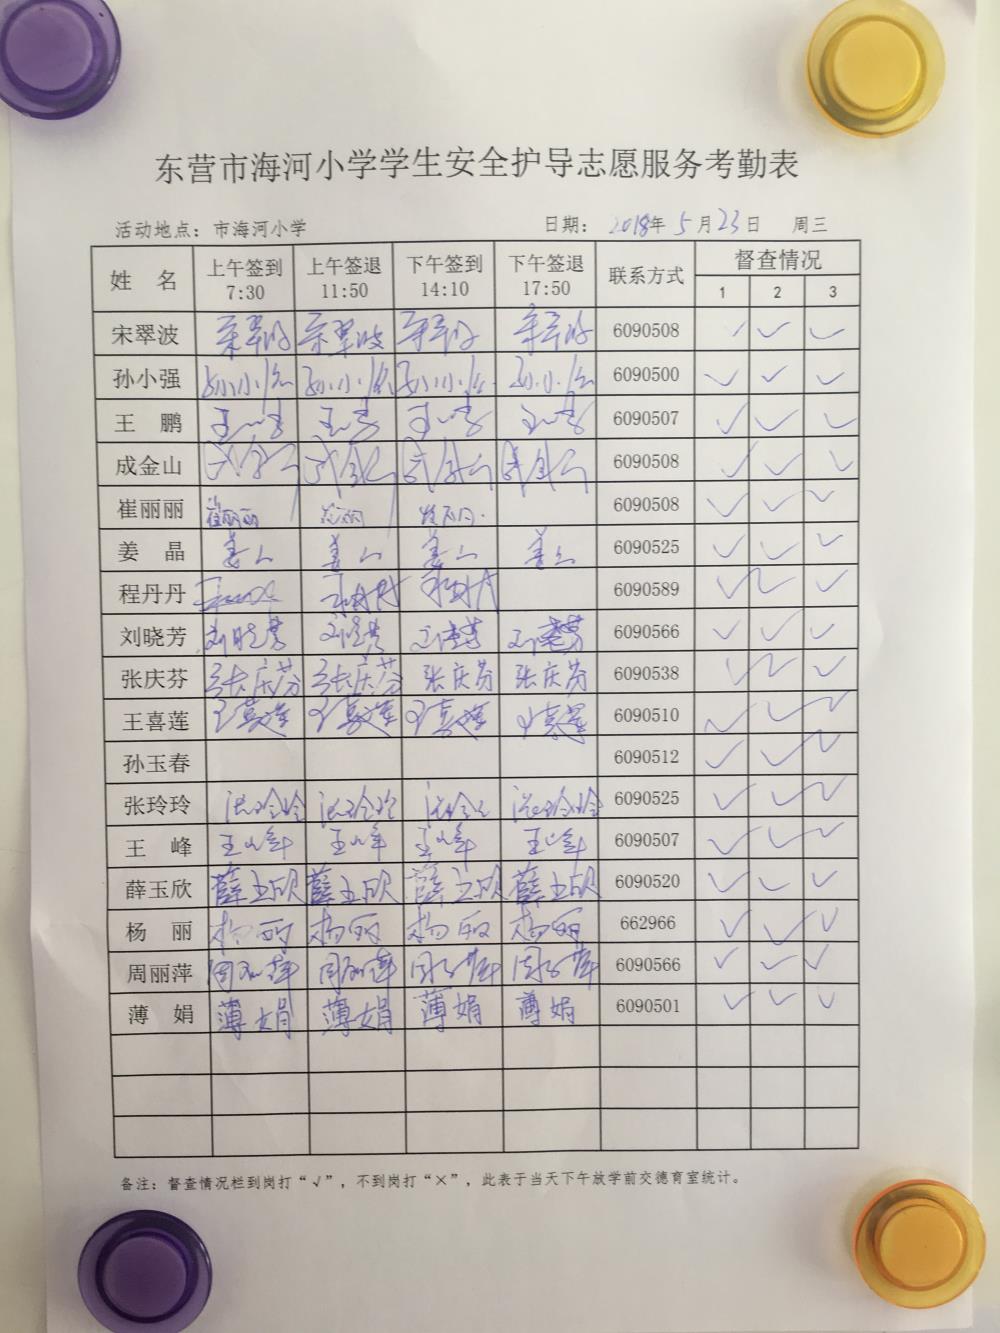 东营市海河小学学生安全护导志愿服务考勤表
活动地点：市海河小学 日期：2018年5月23日 周三
姓 名 上午签到 7:30 上午签退 11:50 下午签到 14:10 下午签退 17:50 联系方式 督查情况 1 2 3
宋翠波 宋翠波 宋翠波 宋翠波 宋翠波 6090508 ✓ ✓ ✓
孙小强 孙小强 孙小强 孙小强 孙小强 6090500 ✓ ✓ ✓
王 鹏 6090507 ✓ ✓ ✓
成金山 成金山 成金山 成金山 成金山 6090508 ✓ ✓ ✓
崔丽丽 崔丽丽 崔丽丽 崔丽丽 6090508 ✓ ✓ ✓
姜 晶 6090525 ✓ ✓ ✓
程丹丹 6090589 ✓ ✓ ✓
刘晓芳 刘晓芳 刘晓芳 刘晓芳 刘晓芳 6090566 ✓ ✓ ✓
张庆芬 张庆芬 张庆芬 张庆芬 张庆芬 6090538 ✓ ✓ ✓
王喜莲 王喜莲 王喜莲 王喜莲 王喜莲 6090510 ✓ ✓ ✓
孙玉春 6090512 ✓ ✓ ✓
张玲玲 张玲玲 张玲玲 张玲玲 张玲玲 6090525 ✓ ✓ ✓
王 峰 王峰 王峰 王峰 王峰 6090507 ✓ ✓ ✓
薛玉欣 薛玉欣 薛玉欣 薛玉欣 薛玉欣 6090520 ✓ ✓ ✓
杨 丽 杨丽 杨丽 杨丽 杨丽 662966 ✓ ✓ ✓
周丽萍 周丽萍 周丽萍 周丽萍 周丽萍 6090566 ✓ ✓ ✓
薄 娟 薄娟 薄娟 薄娟 薄娟 6090501 ✓ ✓ ✓
备注：督查情况栏到岗打“√”，不到岗打“×”，此表于当天下午放学前交德育室统计。